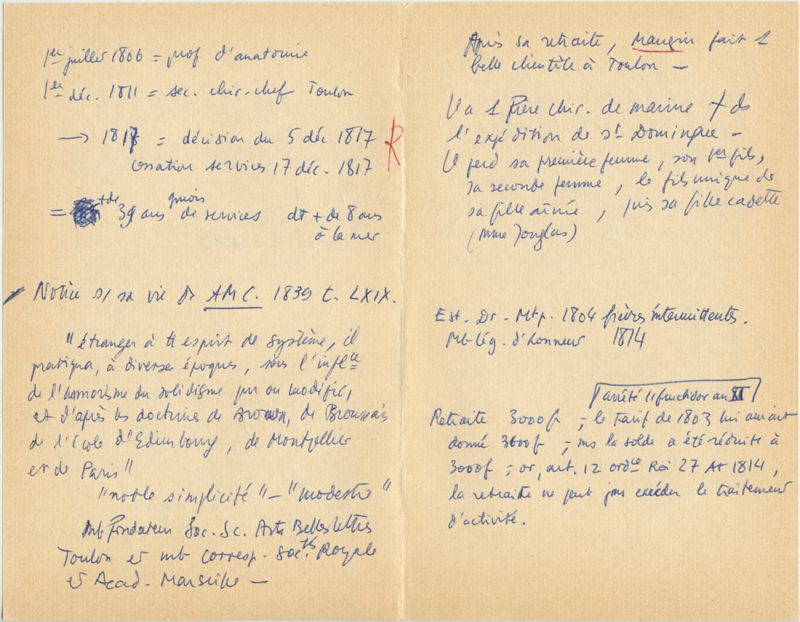 1er juillet 1806 = prof d'anatomie
1er déc. 1811 = sec. chir-chef Toulon
→ 1817 = décision du 5 déc. 1817 R
cessation services 17 déc. 1817
= + de 39 ans de services dt + de 8 ans
à la mer
Notice s/ sa vie ds AMC. 1839 t. LXIX.
"étranger à tt esprit de système, il
pratiqua, à diverses époques, sous l'inflce
de l'humorisme du solidisme pur ou modifié,
et d'après les doctrines de Brown, de Broussais
de l'école d'Edimbourg, de Montpellier
et de Paris"
"noble simplicité" - "modestie"
mb fondateur Soc. Sc. Arts Belles lettres
Toulon et mb corresp. Soc.tés Royale
et Acad. Marseille -
Après sa retraite, Maugin fait 1
belle clientèle à Toulon -
Il a 1 frère chir. de marine + ds
l'expédition de St Domingue -
Il perd sa première femme, son 1er fils,
sa seconde femme, le fils unique de
sa fille aînée, puis sa fille cadette
(Mme Jouglas)
Est. Dr. Mtp. 1804 fièvres intermittentes.
Mb Lég. d'honneur 1814
arrêté 11 fructidor an XI
Retraite 3000f; le tarif de 1803 lui aurait
donné 3600f; ms la solde a été réduite à
3000f; or, art. 12 ordce Roi 27 At 1814,
la retraite ne peut pas excéder le traitement
d'activité.